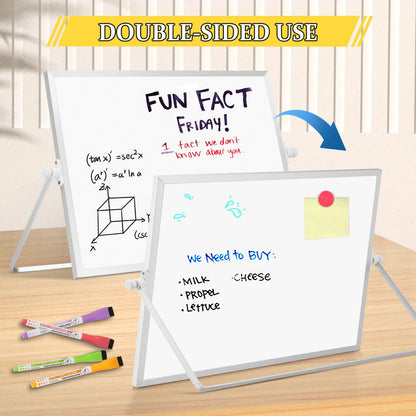 DOUBLE-SIDED USE
FUN FACT
FRIDAY!
1 fact we don't
know about you
(tan x)' = sec²x
(aˣ)' = aˣ ln a
Z
Y
X
(csc
We Need to BUY:
• MILK • CHEESE
• PROPEL
• Lettuce